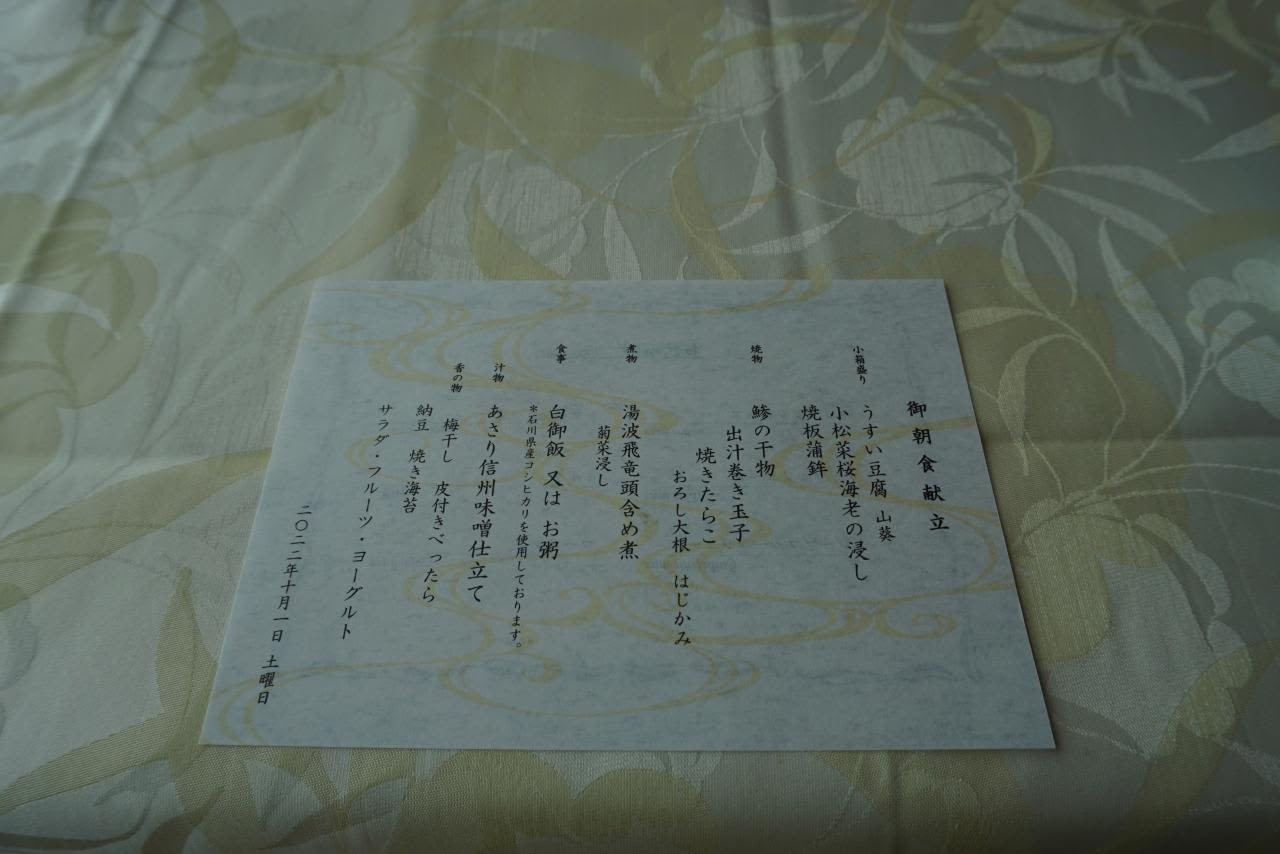 御朝食献立
小箱盛り
うすい豆腐 山葵
小松菜桜海老の浸し
焼板蒲鉾
焼物
鯵の干物
出汁巻き玉子
焼きたらこ
おろし大根 はじかみ
煮物
湯波飛竜頭含め煮
菊菜浸し
食事
白御飯 又は お粥
*石川県産コシヒカリを使用しております。
汁物
あさり信州味噌仕立て
香の物
梅干し 皮付きべったら
納豆 焼き海苔
サラダ・フルーツ・ヨーグルト
二〇二二年十月一日 土曜日